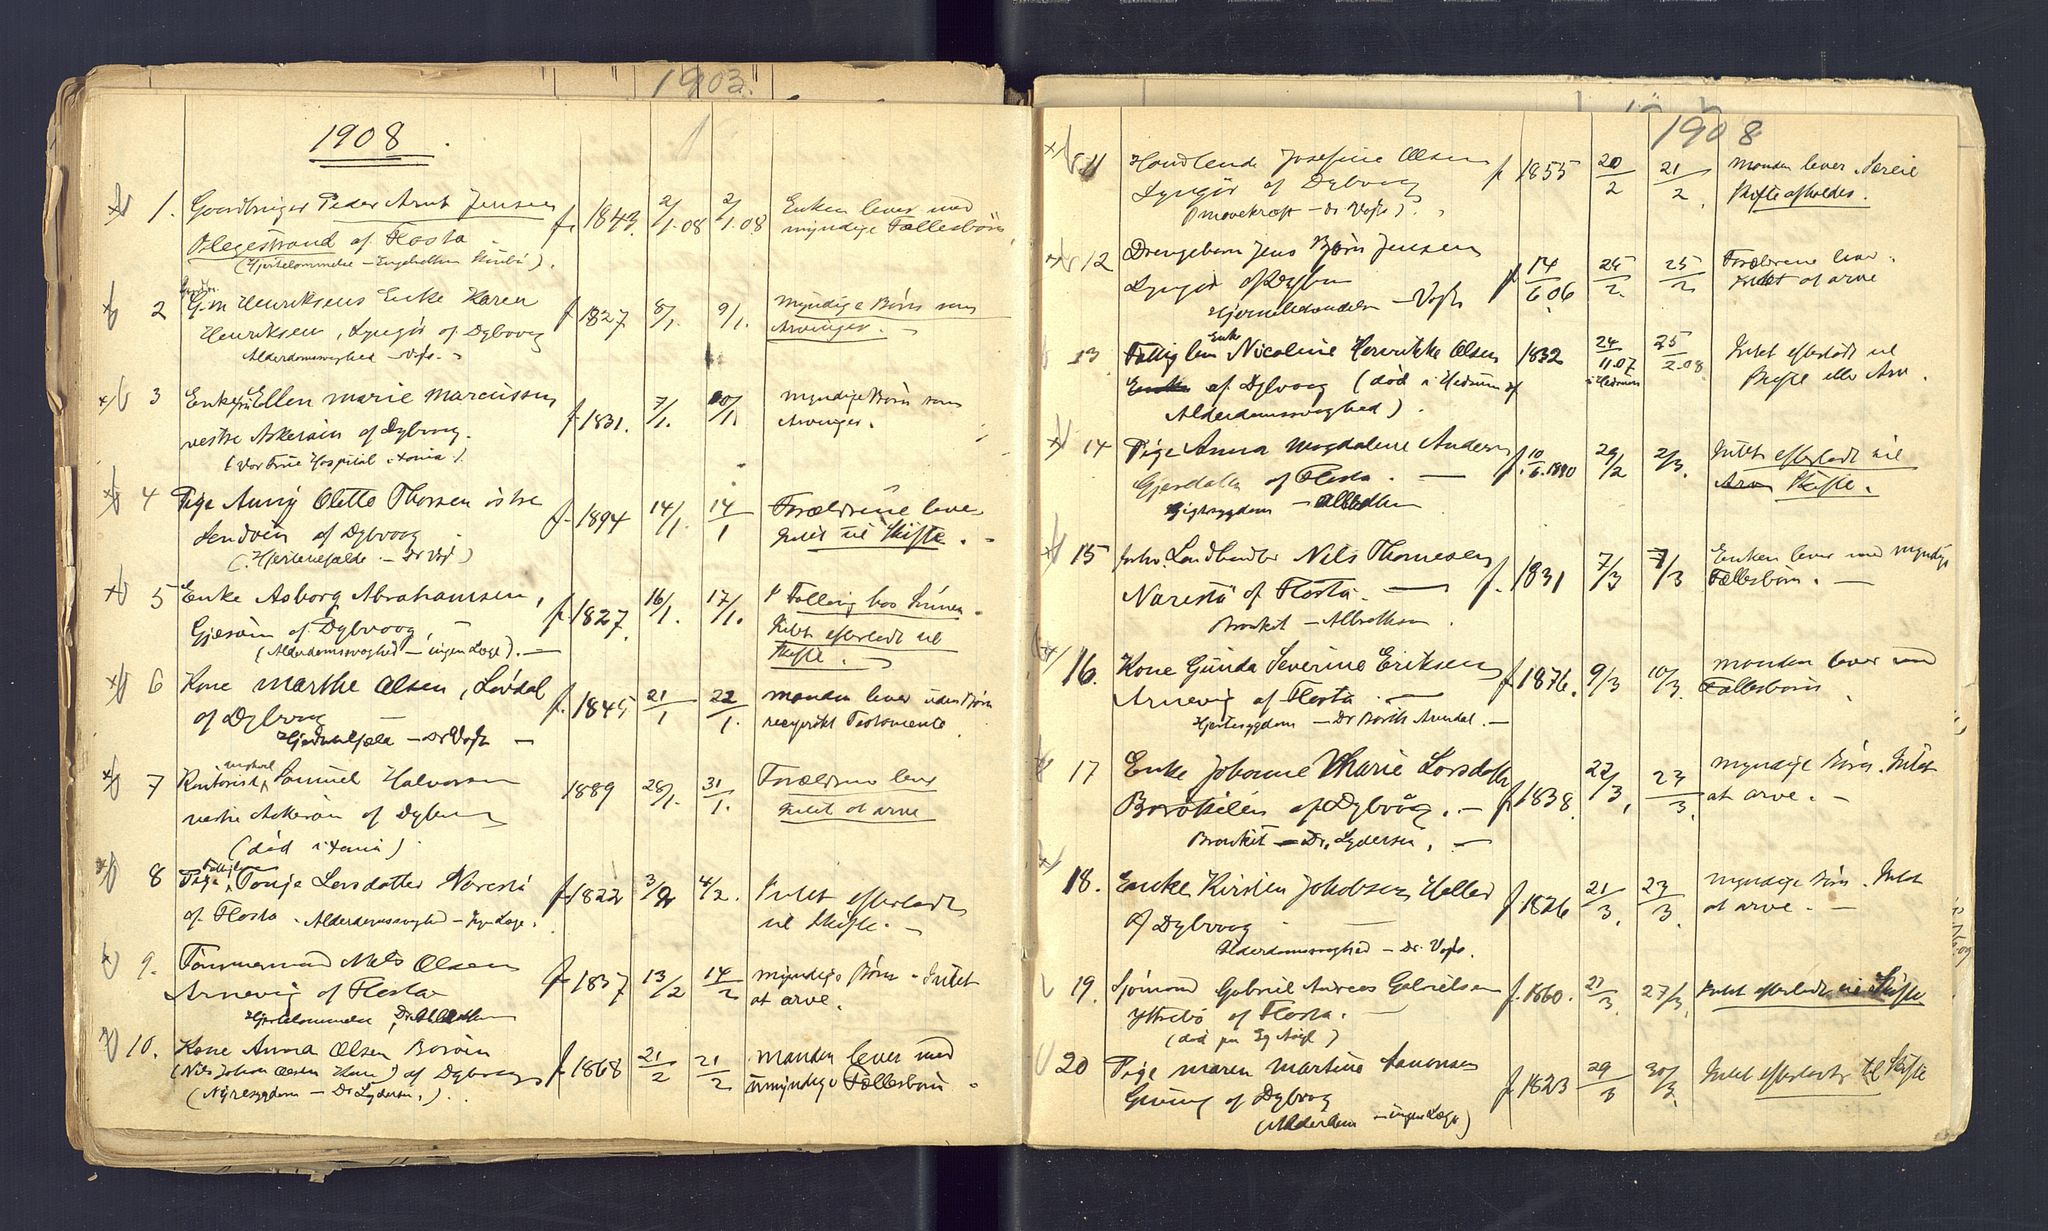 1903.
1908.
1. Gaardbruger Peder Arnt Jensen f. 1843. 2/1.08 2/1.08 Enken lever med
of Flosta myndige Fællesbörn.
(Hjertelammelse –
2 G.m. Henriksens Enke Karen f 1827 8/1. 9/1. myndige Börn som
Henriksen, Lyngör af Dybvaag Arvinger. –
Alderdomssvaghed – Vogt. –
3 Enkefru Ellen Marie Marcussen f. 1831. 7/1. 20/1. myndige Börn som
vestre Askeröen af Dybvaag. Arvinger.
(Vor Frue Hospital i Xania.)
4 Pige Anny Olette Thorsen östre f. 1894 14/1. 14/1 Forældrene lever
Sandöen af Dybvaag Intet til Skifte. –
(Hjertefeil – Dr Vogt)
5 Enke Asborg Abrahamsen, f. 1827. 16/1. 17/1. Fattig hos Sönnen.
Gjesöen af Dybvaag. – Intet efterladt til
(Alderdomssvaghed – ingen Læge). – Skifte. –
6 Kone Marthe Olsen, Lövdal f. 1845 21/1 22/1. Manden lever uden Börn
af Dybvaag reciprokt Testamente.
– Dr Vogt –
7 Kontorist, Samuel Halvorsen 1889 28/1. 31/1. Forældrene lever
vestre Askeröen af Dybvaag Intet at arve
(död i Xania)
8 Pige Tonje Larsdatter Narestö f. 1822 3/2 4/2. Intet efterladt
af Flosta. Alderdomssvaghed – Ingen Læge. til Skifte. –
9. Tømmermand Niels Olsen f. 1837 13/2 14/2 myndige Börn – Intet
Arnevig af Flosta at arve.
Hjertelammelse,
10. Kone Anna Olsen Boröen f. 1868 21/2 21/2 Manden lever med
(Nils Johan Olsens Kone) af Dybvaag umyndige Fællesbörn.
(Nyresygdom – Dr Lydersen.).
1908
11 Handlende Josefine Olsen f 1855 20/2 21/2. Manden lever. Særeie
Lyngör af Dybvaag Skifte afholdes.
– Dr Vogt).
12 Drengebarn Jens Björn Jensen f 14/6.06 25/2. 25/2 Forældrene lever.
Lyngör af Dybvaag Intet at arve
Hjernebetændelse – Vogt
13 Fattiglem Enke Nicoline Henrikke Olsen 1832 24/11.07 25/2.08 Intet efterladt til
Enke af Dybvaag (död i Hedrum af i Hedrum Skifte eller Arv.
Alderdomssvaghed).
14 Pige Anna Magdalene Andersen f. 10/6.1890 29/2 2/3. Intet efterladt til
Gjerdalen af Flosta. – Arv Skifte.
Gigtsygdom –
15 Landhandler Nils Thomesen f. 1831 7/3 7/3 Enken lever med myndige
Narestö af Flosta. – Fællesbörn. –
Bronkit – Albrethsen.
16. Kone Gunda Severine Eriksen f 1876. 9/3 10/3. Manden lever med
Arnevig af Flosta. – Fællesbörn.
Hjertesygdom – Dr Arendal. –
17 Enke Johanne Marie Larsdatter f 1838. 22/3. 23/3. myndige Börn. Intet
Borökilen af Dybvåg. – at arve. –
Bronkit – Dr. Lydersen. –
18. Enke Kirsten Jakobsen Hellen f. 1826 21/3. 23/3. myndige Börn. Intet
af Dybvaag at arve. –
Alderdomssvaghed – Dr. Vogt.
19. Sjömand Gabriel Andreas Gabrielsen f. 1860. 21/3. 27/3. Intet efterladt til Skifte
Yttrebö af Flosta. –
20 Pige Maren Martine Aanonsen f. 1823 29/3 30/3. Intet efterladt til Skifte
Geving af Dybvaag
(Alderdom – ingen Læge)